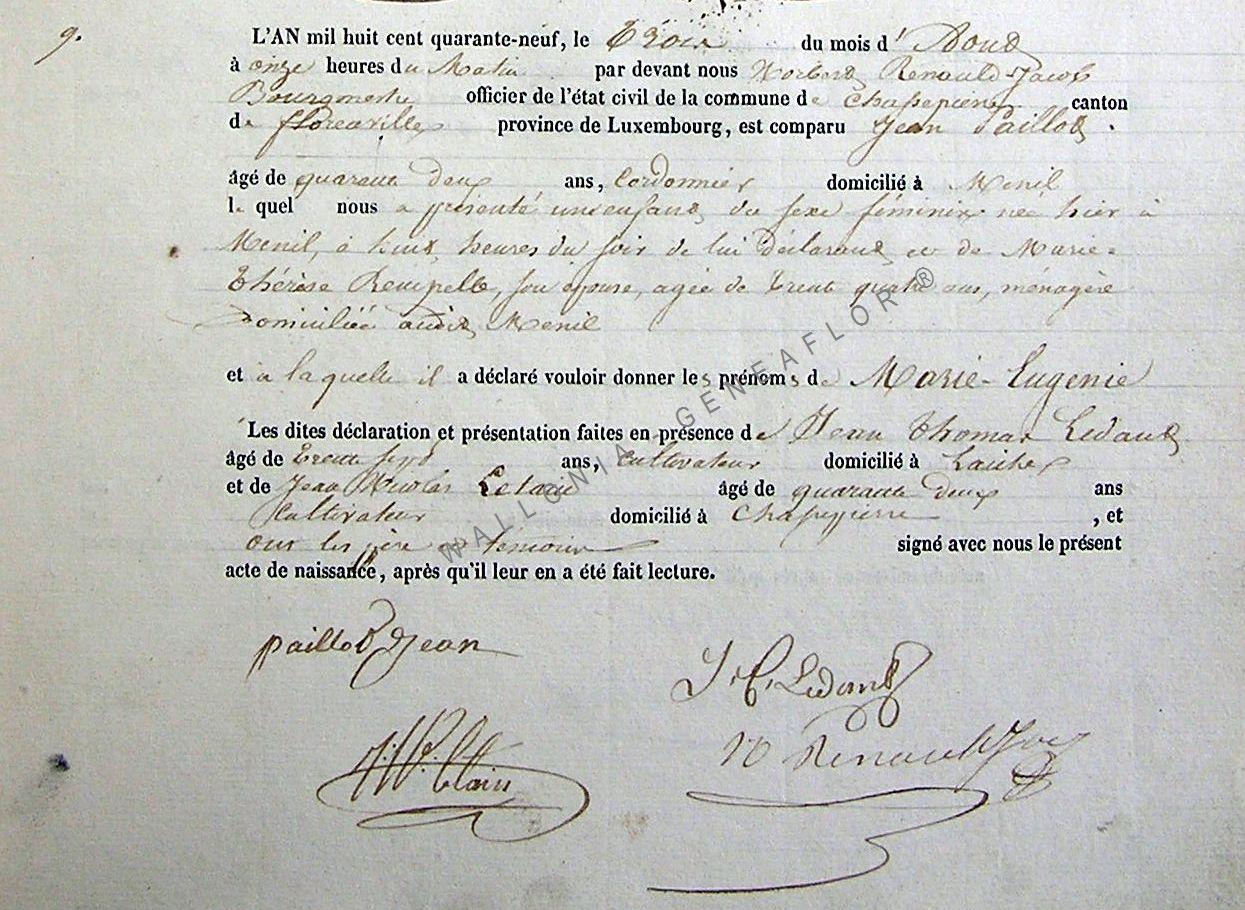 9.
L'AN mil huit cent quarante-neuf, le Trois du mois d'Aout
à onze heures du Matin par devant nous Norbert Renauld-Jacob
Bourgmestre officier de l'état civil de la commune de Chassepierre canton
de florenville province de Luxembourg, est comparu Jean Paillot.
âgé de quarante deux ans, Cordonnier domicilié à Menil
lequel nous a présenté un enfant du sexe féminin née hier à
Menil, à huit heures du soir de lui déclarant et de Marie-
Thérèse son épouse, agée de trente quatre ans, ménagère
Domiciliée audit Menil
et à laquelle il a déclaré vouloir donner les prénoms de Marie-Eugenie
Les dites déclaration et présentation faites en présence de Jean Thomas Ledant
âgé de trente sept ans, Cultivateur domicilié à Laiche
et de Jean Nicolas âgé de quarante deux ans
Cultivateur domicilié à Chassepierre, et
ont les père et temoins signé avec nous le présent
acte de naissance, après qu'il leur en a été fait lecture.
paillot Jean
J. T. Ledant
N Renauld Jacob
WALLONIA - GENEAFLOR ®